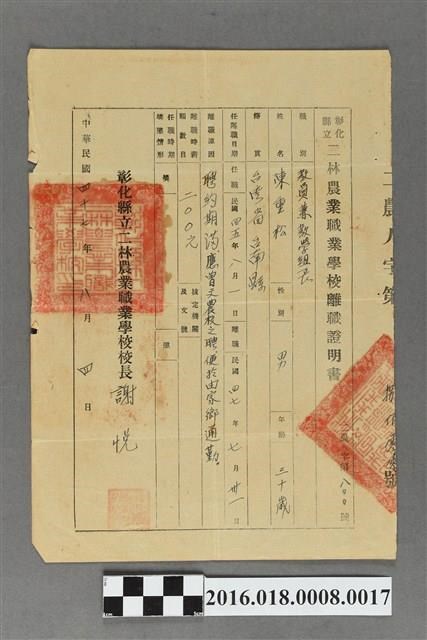 二農人字第
號
彰化縣立二林農業職業學校離職證明書
二農人字第八〇〇號
職別 教員兼教學組長
姓名 陳重松 性別 男 年齡 三十歲
籍貫 台灣省台南縣
任離職日期 任職民國四五年八月一日 離職民國四七年七月卅一日
離職原因 聘約期滿應曾文農校之聘,便於由家鄉通勤。
離職時薪額數目 二〇〇元 核定機關及文號
任職時期獎懲情形 獎 懲
彰化縣立二林農業職業學校校長 謝悦
中華民國四十七年八月四日
2016.018.0008.0017